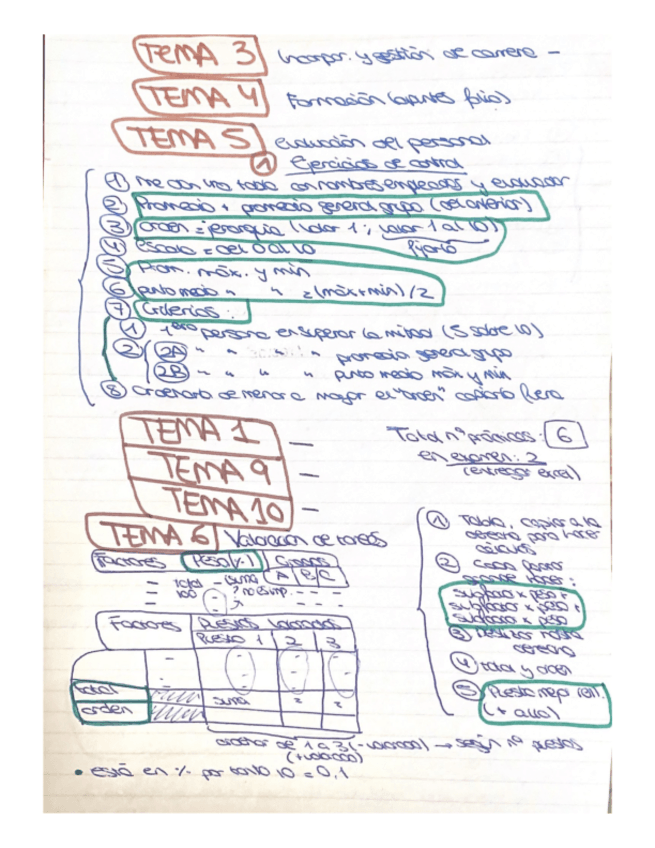 TEMA 3 Incorpor. y gestión de carrera -
TEMA 4 Formación (apuntes folio)
TEMA 5 evaluación del personal
1 Ejercicios de control
1 Me dan una tabla con nombres empleados y evaluador
2 Promedio + promedio general grupo (del anterior)
3 orden = jerarquía (valor 1 ; valor 1 al 10)
fijarlo
4 escala = del 0 al 10
5 Prom. máx. y mín
6 punto medio " " = (máx + mín) / 2
7 Criterios :
1 persona en superar la mitad (5 sobre 10)
2 2A " " " promedio general grupo
2B " " " " punto medio máx y mín
8 Ordenarlo de menor a mayor el "orden" copiarlo fuera
TEMA 1 -
TEMA 9 -
TEMA 10 -
Total nº prácticas : 6
en examen : 2
(entregar excel)
TEMA 6 Valoración de tareas
Factores Peso (%) Grados
A B C
total 100 suma
Factores Puestos valorados
Puesto 1 2 3
total suma " "
orden
ordenar de 1 a 3 (- valorado) → según nº puestos
(+ valorado)
• está en % por tanto 10 = 0,1
1 Tabla, copiar a la derecha para hacer cálculos
2 Cada factor
subfactor x peso +
subfactor x peso +
subfactor x peso
3 derecha
4 total y orden
5 Puesto mejor
(+ alto)